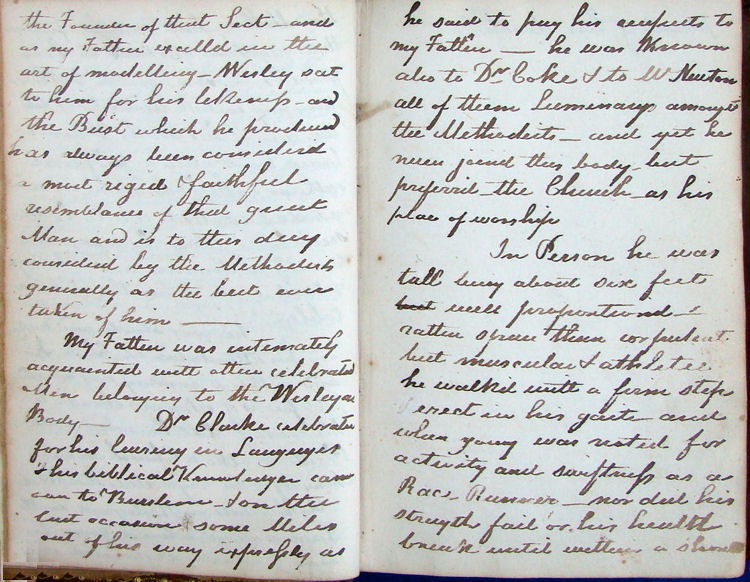 the Founder of that Sect - and
as my Father excelld in the
art of modelling - Wesley sat
to him for his likeness - and
the Bust which he produced
has always been considered
a most rigid & faithful
resemblance of that great
Man and is to this day
considerd by the Methodists
generally as the best ever
taken of him -
My Father was intimately
acquainted with other celebrated
Men belonging to the Wesleyan
Body - Dr Clarke celebrated
for his learning in Languages
& his biblical Knowledge came
over to Burslem - & on the
last occasion some Miles
out of his way expressly as
he said to pay his respects to
my Father - he was Known
also to Dr Coke & to Mr Newton
all of them Luminarys amongst
the Methodists - and yet he
never joind this body - but
preferrd - the Church - as his
place of worship
In Person he was
tall being about six feet
but well proportiond - &
rather spare than corpulent
but muscular & athletic
he walkd with a firm step
erect in his gait - and
when young was noted for
activity and swiftness as a
Race Runner - nor did his
strength fail or his health
break until within a short